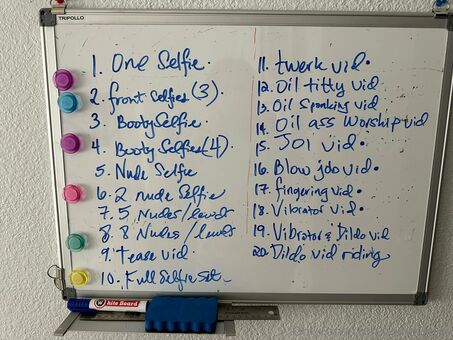 TRIPOLLO
1. One Selfie.
2. front selfies (3).
3. Booty Selfie.
4. Booty Selfies (4)
5. Nude Selfie
6. 2 nude Selfie
7. 5 Nudes/lewds
8. 8 Nudes/lewds
9. tease vid
10. Full Selfie Set.
11. twerk vid.
12. Oil titty vid
13. Oil Spanking vid
14. Oil ass Worship vid
15. JOI vid.
16. Blow jdo vid.
17. fingering vid.
18. Vibrator vid.
19. Vibrator & Dildo vid
20. Dildo vid riding
White Board